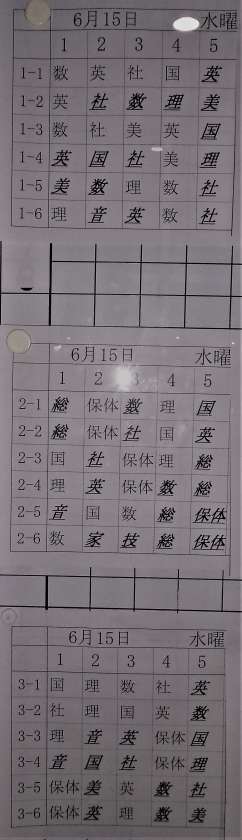 6月15日 水曜
1 2 3 4 5
1-1 数 英 社 国 英
1-2 英 社 数 理 美
1-3 数 社 美 英 国
1-4 英 国 社 美 理
1-5 美 数 理 数 社
1-6 理 音 英 数 社
6月15日 水曜
1 2 3 4 5
2-1 総 保体 数 理 国
2-2 総 保体 社 国 英
2-3 国 社 保体 理 総
2-4 理 英 保体 数 総
2-5 音 国 数 総 保体
2-6 数 家 技 総 保体
6月15日 水曜
1 2 3 4 5
3-1 国 理 数 社 英
3-2 社 理 国 英 数
3-3 理 音 英 保体 国
3-4 音 国 社 保体 理
3-5 保体 美 英 数 社
3-6 保体 英 理 数 美